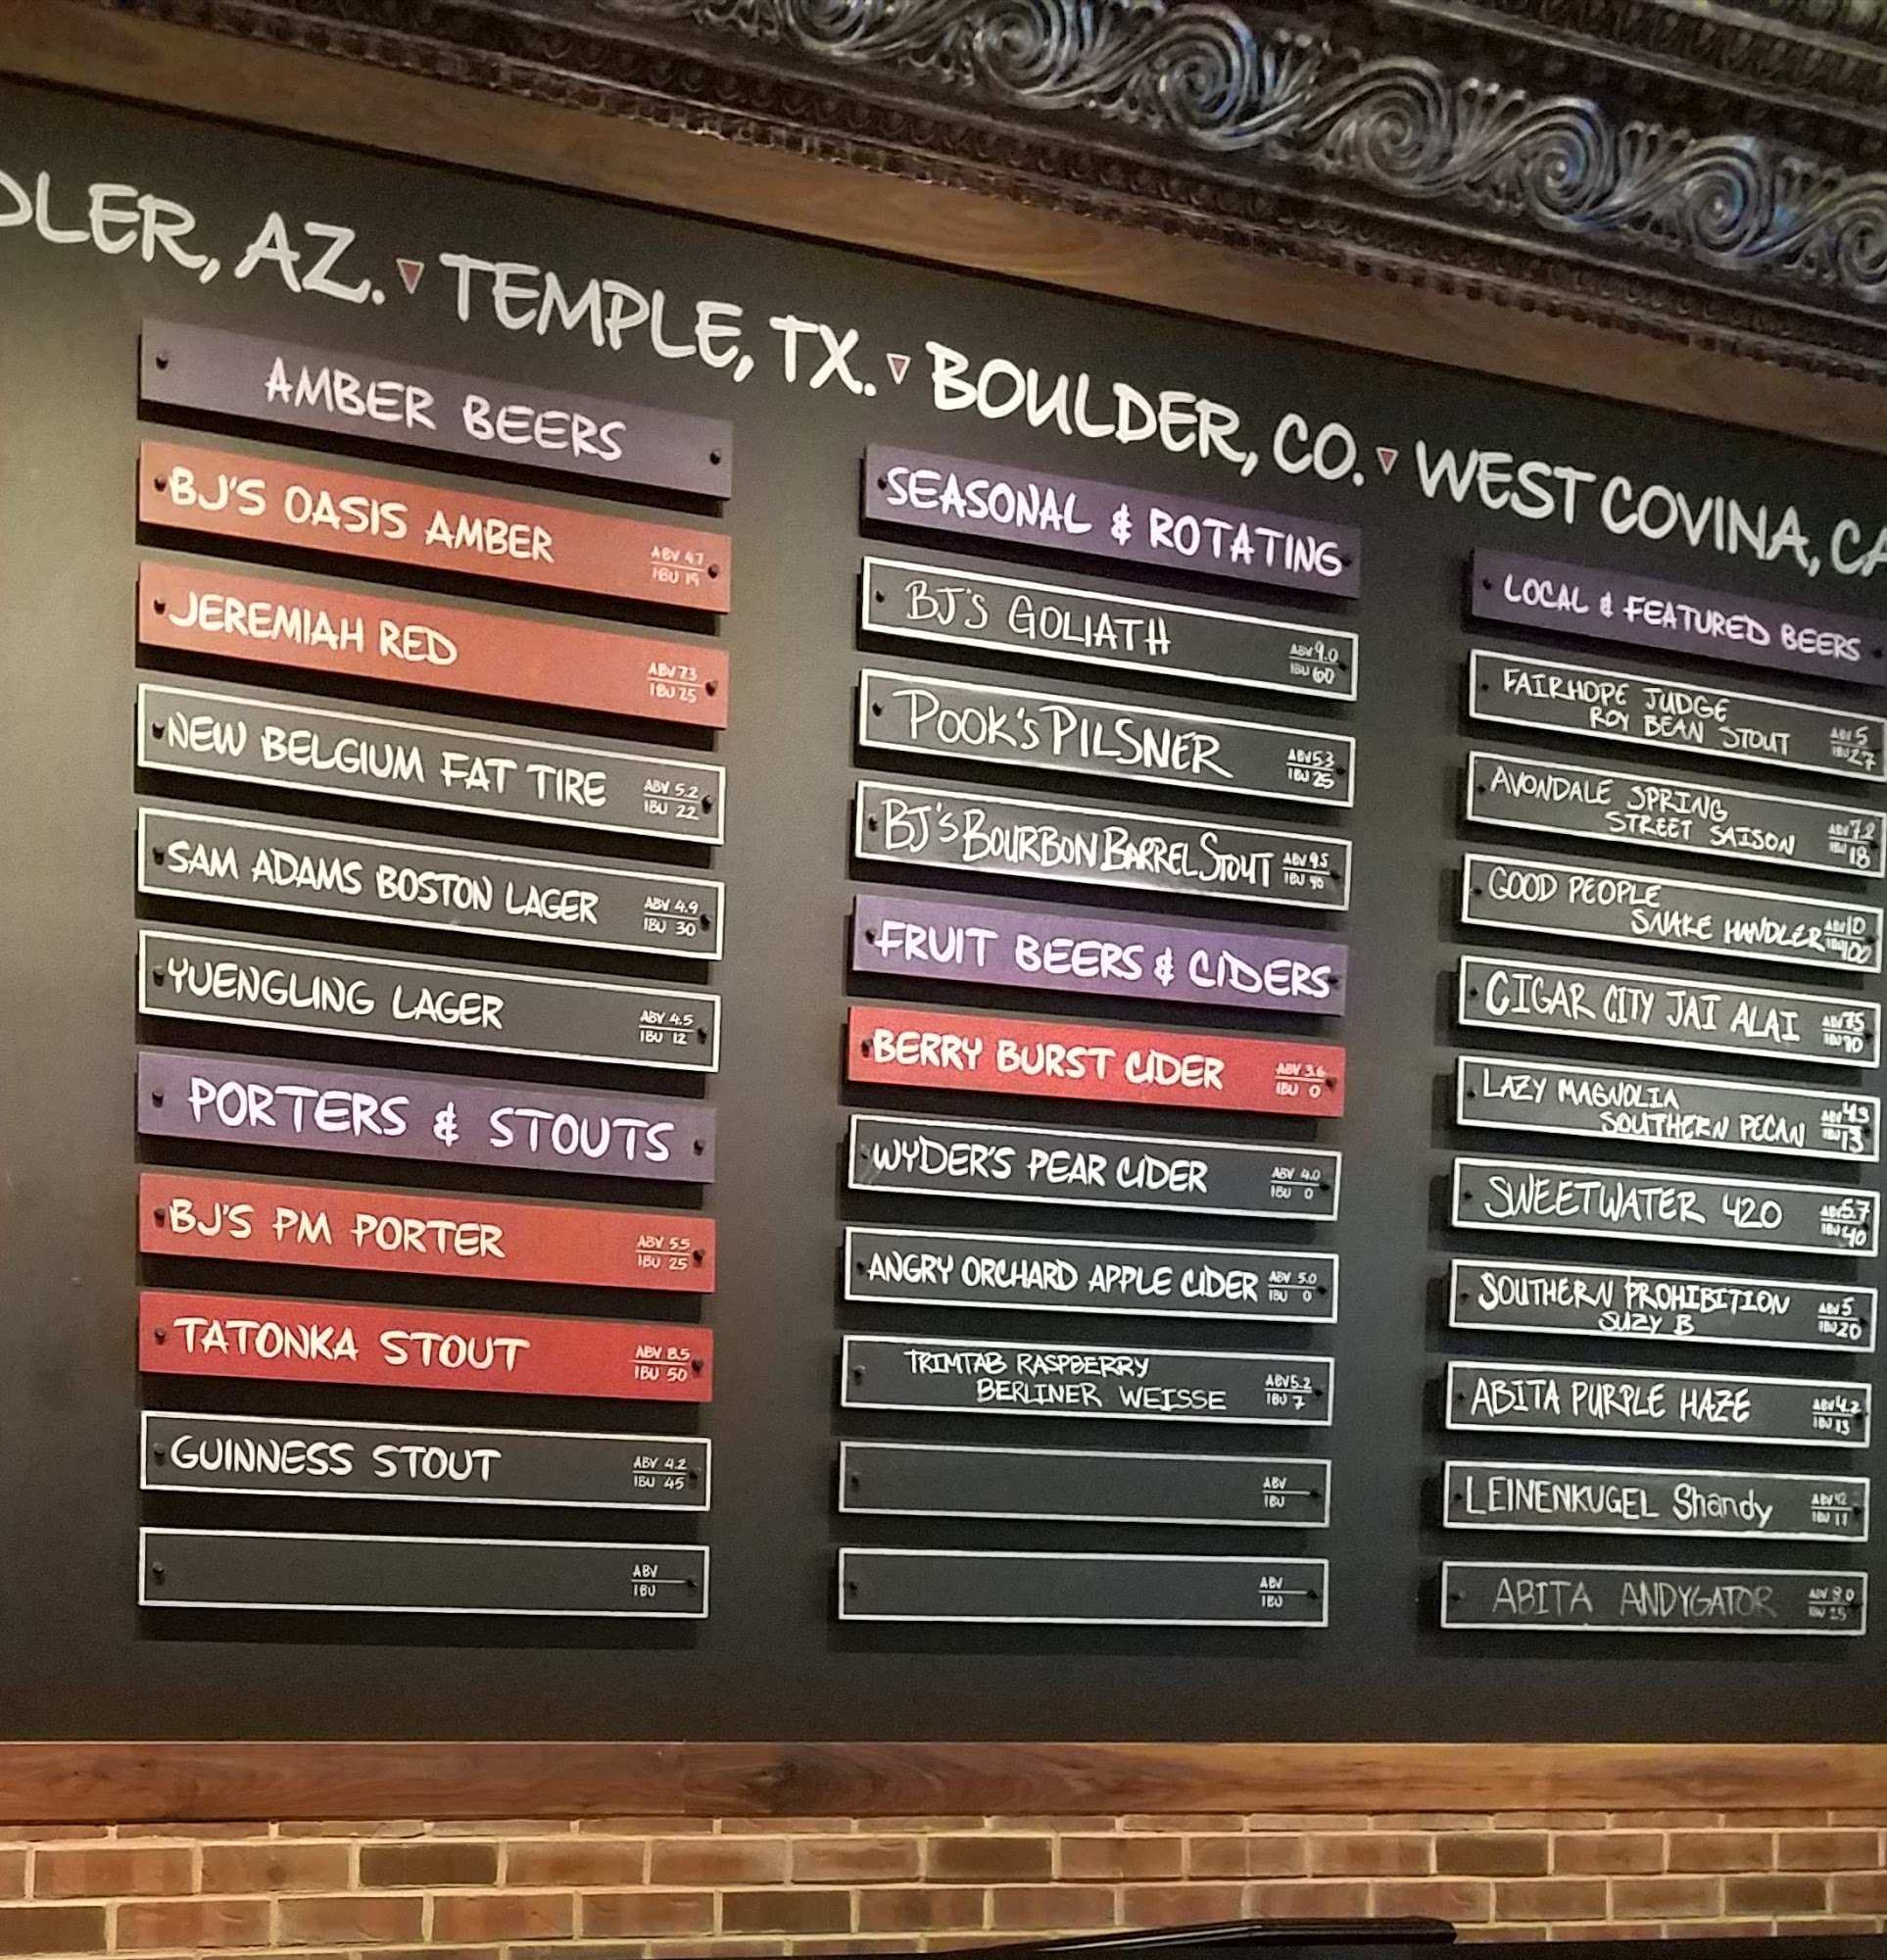 DLER, AZ. ▼ TEMPLE, TX. ▼ BOULDER, CO. ▼ WEST COVINA, CA
AMBER BEERS
BJ'S OASIS AMBER
ABV 4.7
IBU 19
JEREMIAH RED
ABV 7.3
IBU 25
NEW BELGIUM FAT TIRE
ABV 5.2
IBU 22
SAM ADAMS BOSTON LAGER
ABV 4.9
IBU 30
YUENGLING LAGER
ABV 4.5
IBU 12
PORTERS & STOUTS
BJ'S PM PORTER
ABV 5.5
IBU 25
TATONKA STOUT
ABV 8.5
IBU 50
GUINNESS STOUT
ABV 4.2
IBU 45
ABV
IBU
SEASONAL & ROTATING
BJ'S GOLIATH
ABV 9.0
IBU 60
POOK'S PILSNER
ABV 5.3
IBU 25
BJ'S BOURBON BARREL STOUT
ABV 9.5
IBU
FRUIT BEERS & CIDERS
BERRY BURST CIDER
ABV 3.6
IBU 0
WYDER'S PEAR CIDER
ABV 4.0
IBU 0
ANGRY ORCHARD APPLE CIDER
ABV 5.0
IBU 0
TRIMTAB RASPBERRY
BERLINER WEISSE
ABV 5.2
IBU 7
ABV
IBU
ABV
IBU
LOCAL & FEATURED BEERS
FAIRHOPE JUDGE
ROY BEAN STOUT
ABV 5
IBU 27
AVONDALE SPRING
STREET SAISON
ABV 7.2
IBU 18
GOOD PEOPLE
SNAKE HANDLER
ABV 10
IBU 100
CIGAR CITY JAI ALAI
ABV 7.5
IBU 70
LAZY MAGNOLIA
SOUTHERN PECAN
ABV 4.3
IBU 13
SWEETWATER 420
ABV 5.7
IBU 40
SOUTHERN PROHIBITION
SUZY B
ABV 5
IBU 20
ABITA PURPLE HAZE
ABV 4.2
IBU 13
LEINENKUGEL Shandy
ABV 4.2
IBU 11
ABITA ANDYGATOR
ABV 8.0
IBU 25